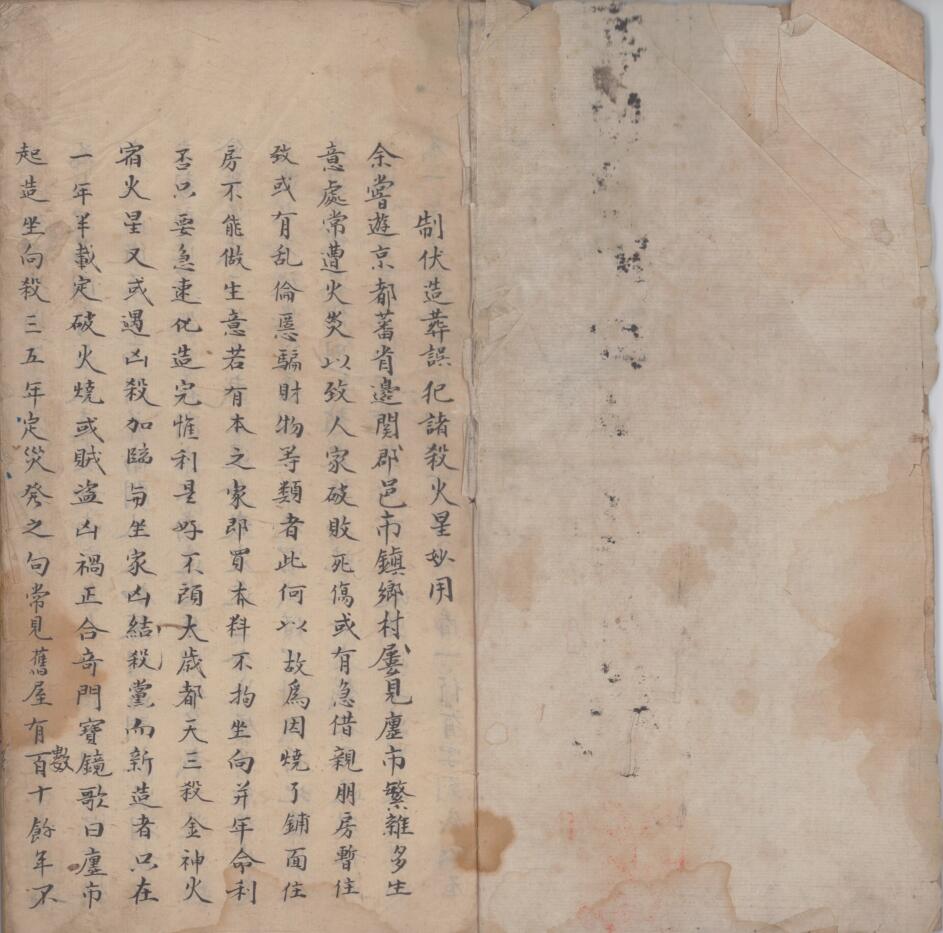 制伏造葬誤犯諸殺火星妙用
余嘗遊京都蕃省邊関郡邑市鎮鄉村屡見廛市繁雜多生
意處常遭火炎以致人家破敗死傷或有急借親朋房暫住
致或有乱倫惡騙財物等類者此何以故爲因燒了鋪面住
房不能做生意若有本之家即買木料不拘坐向并年命利
否只要急速化造完惟利是好不顧太歲都天三殺金神火
宿火星又或遇凶殺加臨与坐家凶結殺黨而新造者只在
一年半載定破火燒或賊盜凶禍正合奇門寶鏡歌曰廛市
起造坐向殺三五年定災發之句常見舊屋有數百十餘年不